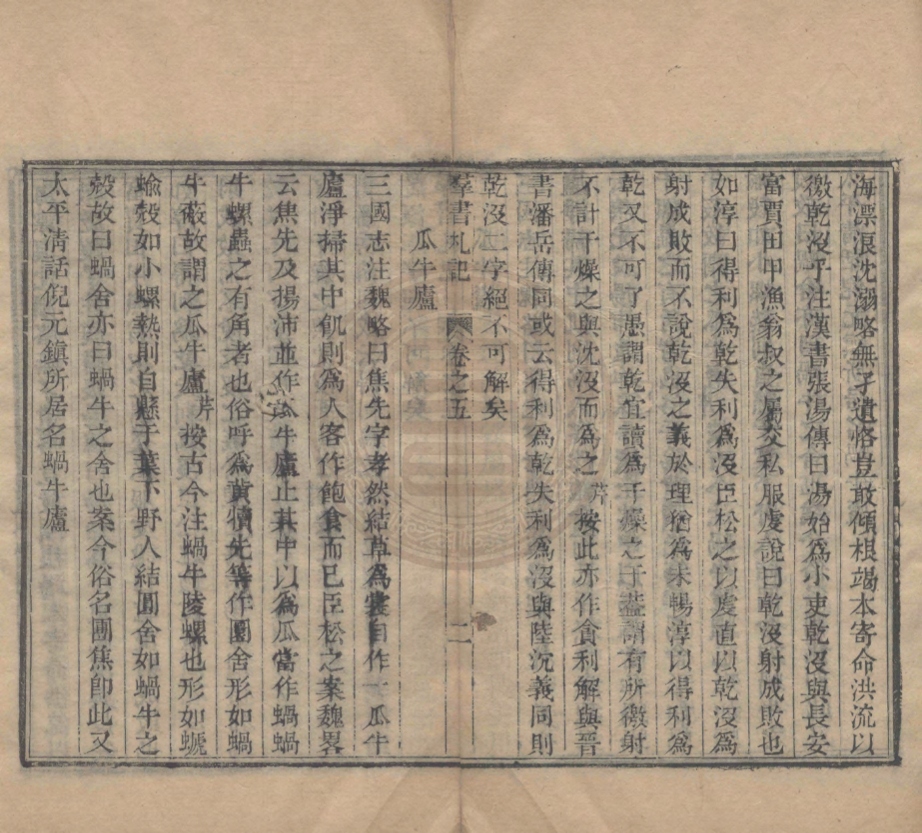 海漂浪沈溺略無孑遺恪豈敢傾根竭本寄命洪流以
徼乾沒乎注漢書張湯傳曰湯始爲小吏乾沒與長安
富賈田甲漁翁叔之屬交私服虔說曰乾沒射成敗也
如淳曰得利爲乾失利爲沒臣松之以虔直以乾沒爲
射成敗而不說乾沒之義於理猶爲未暢淳以得利爲
乾又不可了愚謂乾宜讀爲干燥之干葢謂有所徼射
不計干燥之與沈沒而爲之芹按此亦作貪利解與晉
書潘岳傳同或云得利爲乾失利爲沒與陸沉義同則
乾沒二字絕不可解矣
羣書札記 卷之五 二
瓜牛廬
三國志注魏略曰焦先字孝然結草爲裳自作一瓜牛
廬淨掃其中飢則爲人客作飽食而已臣松之案魏畧
云焦先及揚沛並作瓜牛廬止其中以爲瓜當作蝸蝸
牛螺蟲之有角者也俗呼爲黃犢先等作圜舍形如蝸
牛蔽故謂之瓜牛廬芹按古今注蝸牛陵螺也形如螔
蝓殼如小螺熱則自懸于葉下野人結圓舍如蝸牛之
殼故曰蝸舍亦曰蝸牛之舍也案今俗名團焦卽此又
太平清話倪元鎮所居名蝸牛廬